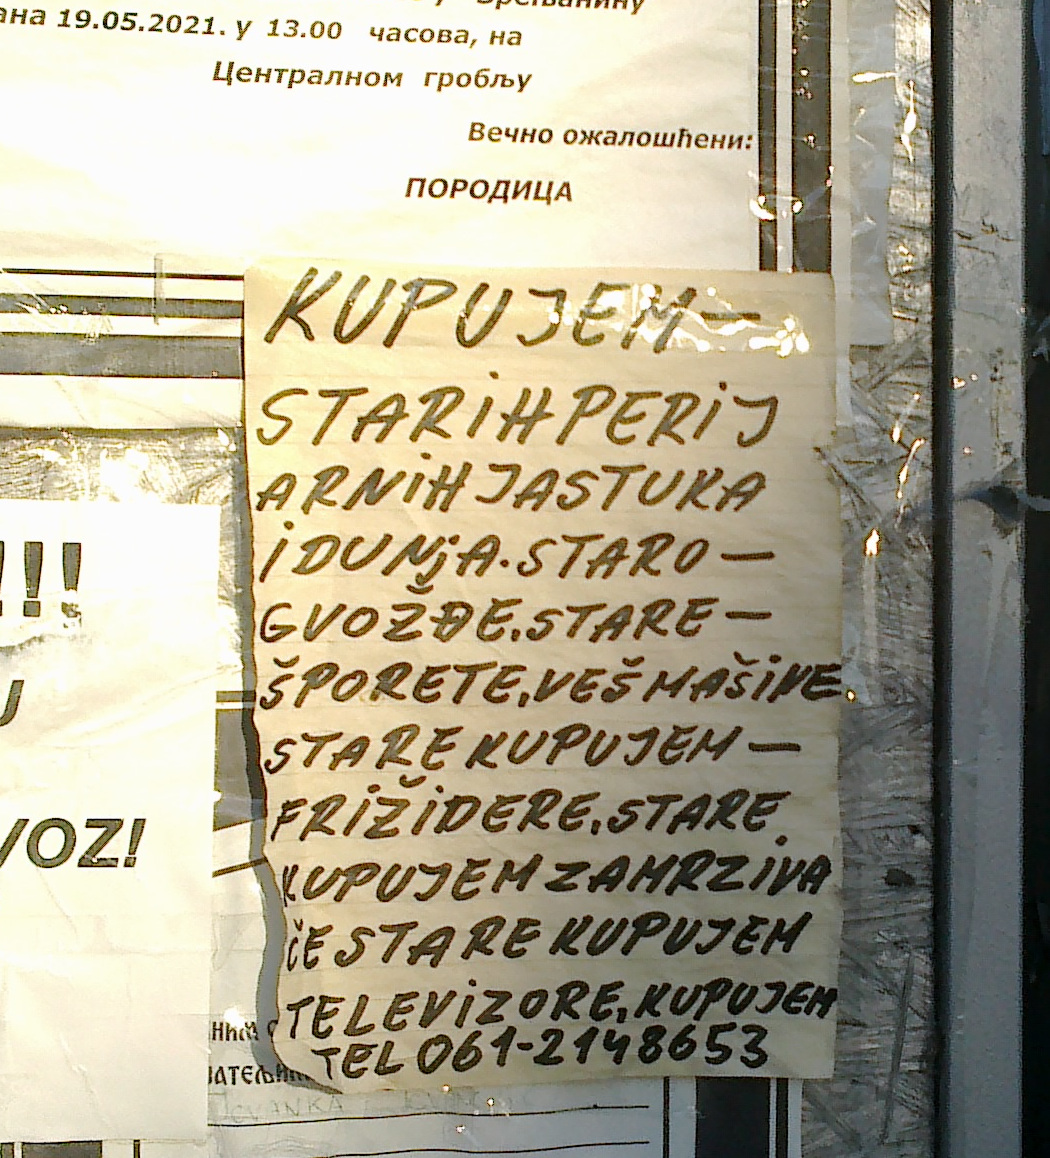 19.05.2021. у 13.00 часова, на
Централном гробљу
Вечно ожалошћени:
ПОРОДИЦА
KUPUJEM—
STARiH PERiJ
ARNiH JASTUKA
i DUNjA. STARO—
GVOŽĐE, STARE—
ŠPORETE, VEŠ MAŠiNE
STARE KUPUJEM—
FRiŽiDERE, STARE
KUPUJEM ZAMRZiVA
ČE STARE KUPUJEM
TELEViZORE, KUPUJEM
TEL 061-2148653
!!!
VOZ!